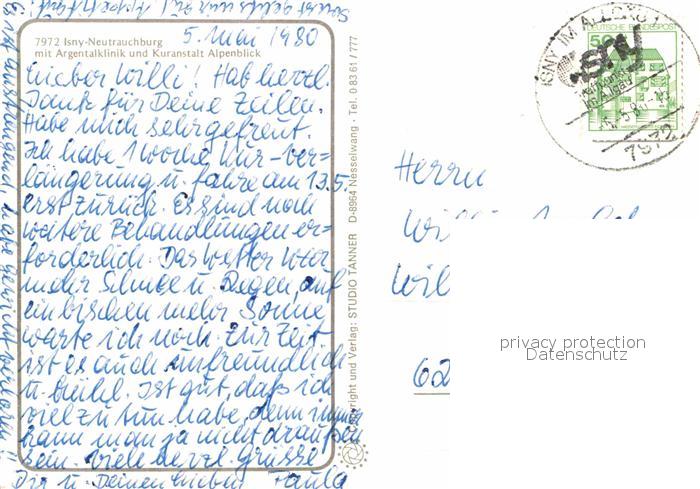 7972 Isny-Neutrauchburg
mit Argentalklinik und Kuranstalt Alpenblick
5. Mai 1980
Lieber Willi! Hab herzl.
Dank für Deine Zeilen.
Habe mich sehr gefreut.
Ich habe 1 Woche Kur-ver=
längerung u. fahre am 13.5.
erst zurück. Es sind noch
weitere Behandlungen er=
forderlich. Das Wetter war
mehr Schnee u. Regen, auf
ein bischen mehr Sonne
warte ich noch. Zur Zeit
ist es auch unfreundlich
u. kühl. Ist gut, daß ich
viel zu tun habe, denn immer
kann man ja nicht draußen
sein. Viele herzl. Grüsse
Dir u. Deinen Lieben Paula
Es ist anstrengend, habe Gewicht verloren!!
Sonst geht's mir gut
Copyright und Verlag: STUDIO TANNER D-8964 Nesselwang · Tel. 0 83 61 / 777
ISNY IM ALLGÄU
isny
7972
DEUTSCHE BUNDESPOST
50
Herrn
Wil
62
privacy protection
Datenschutz